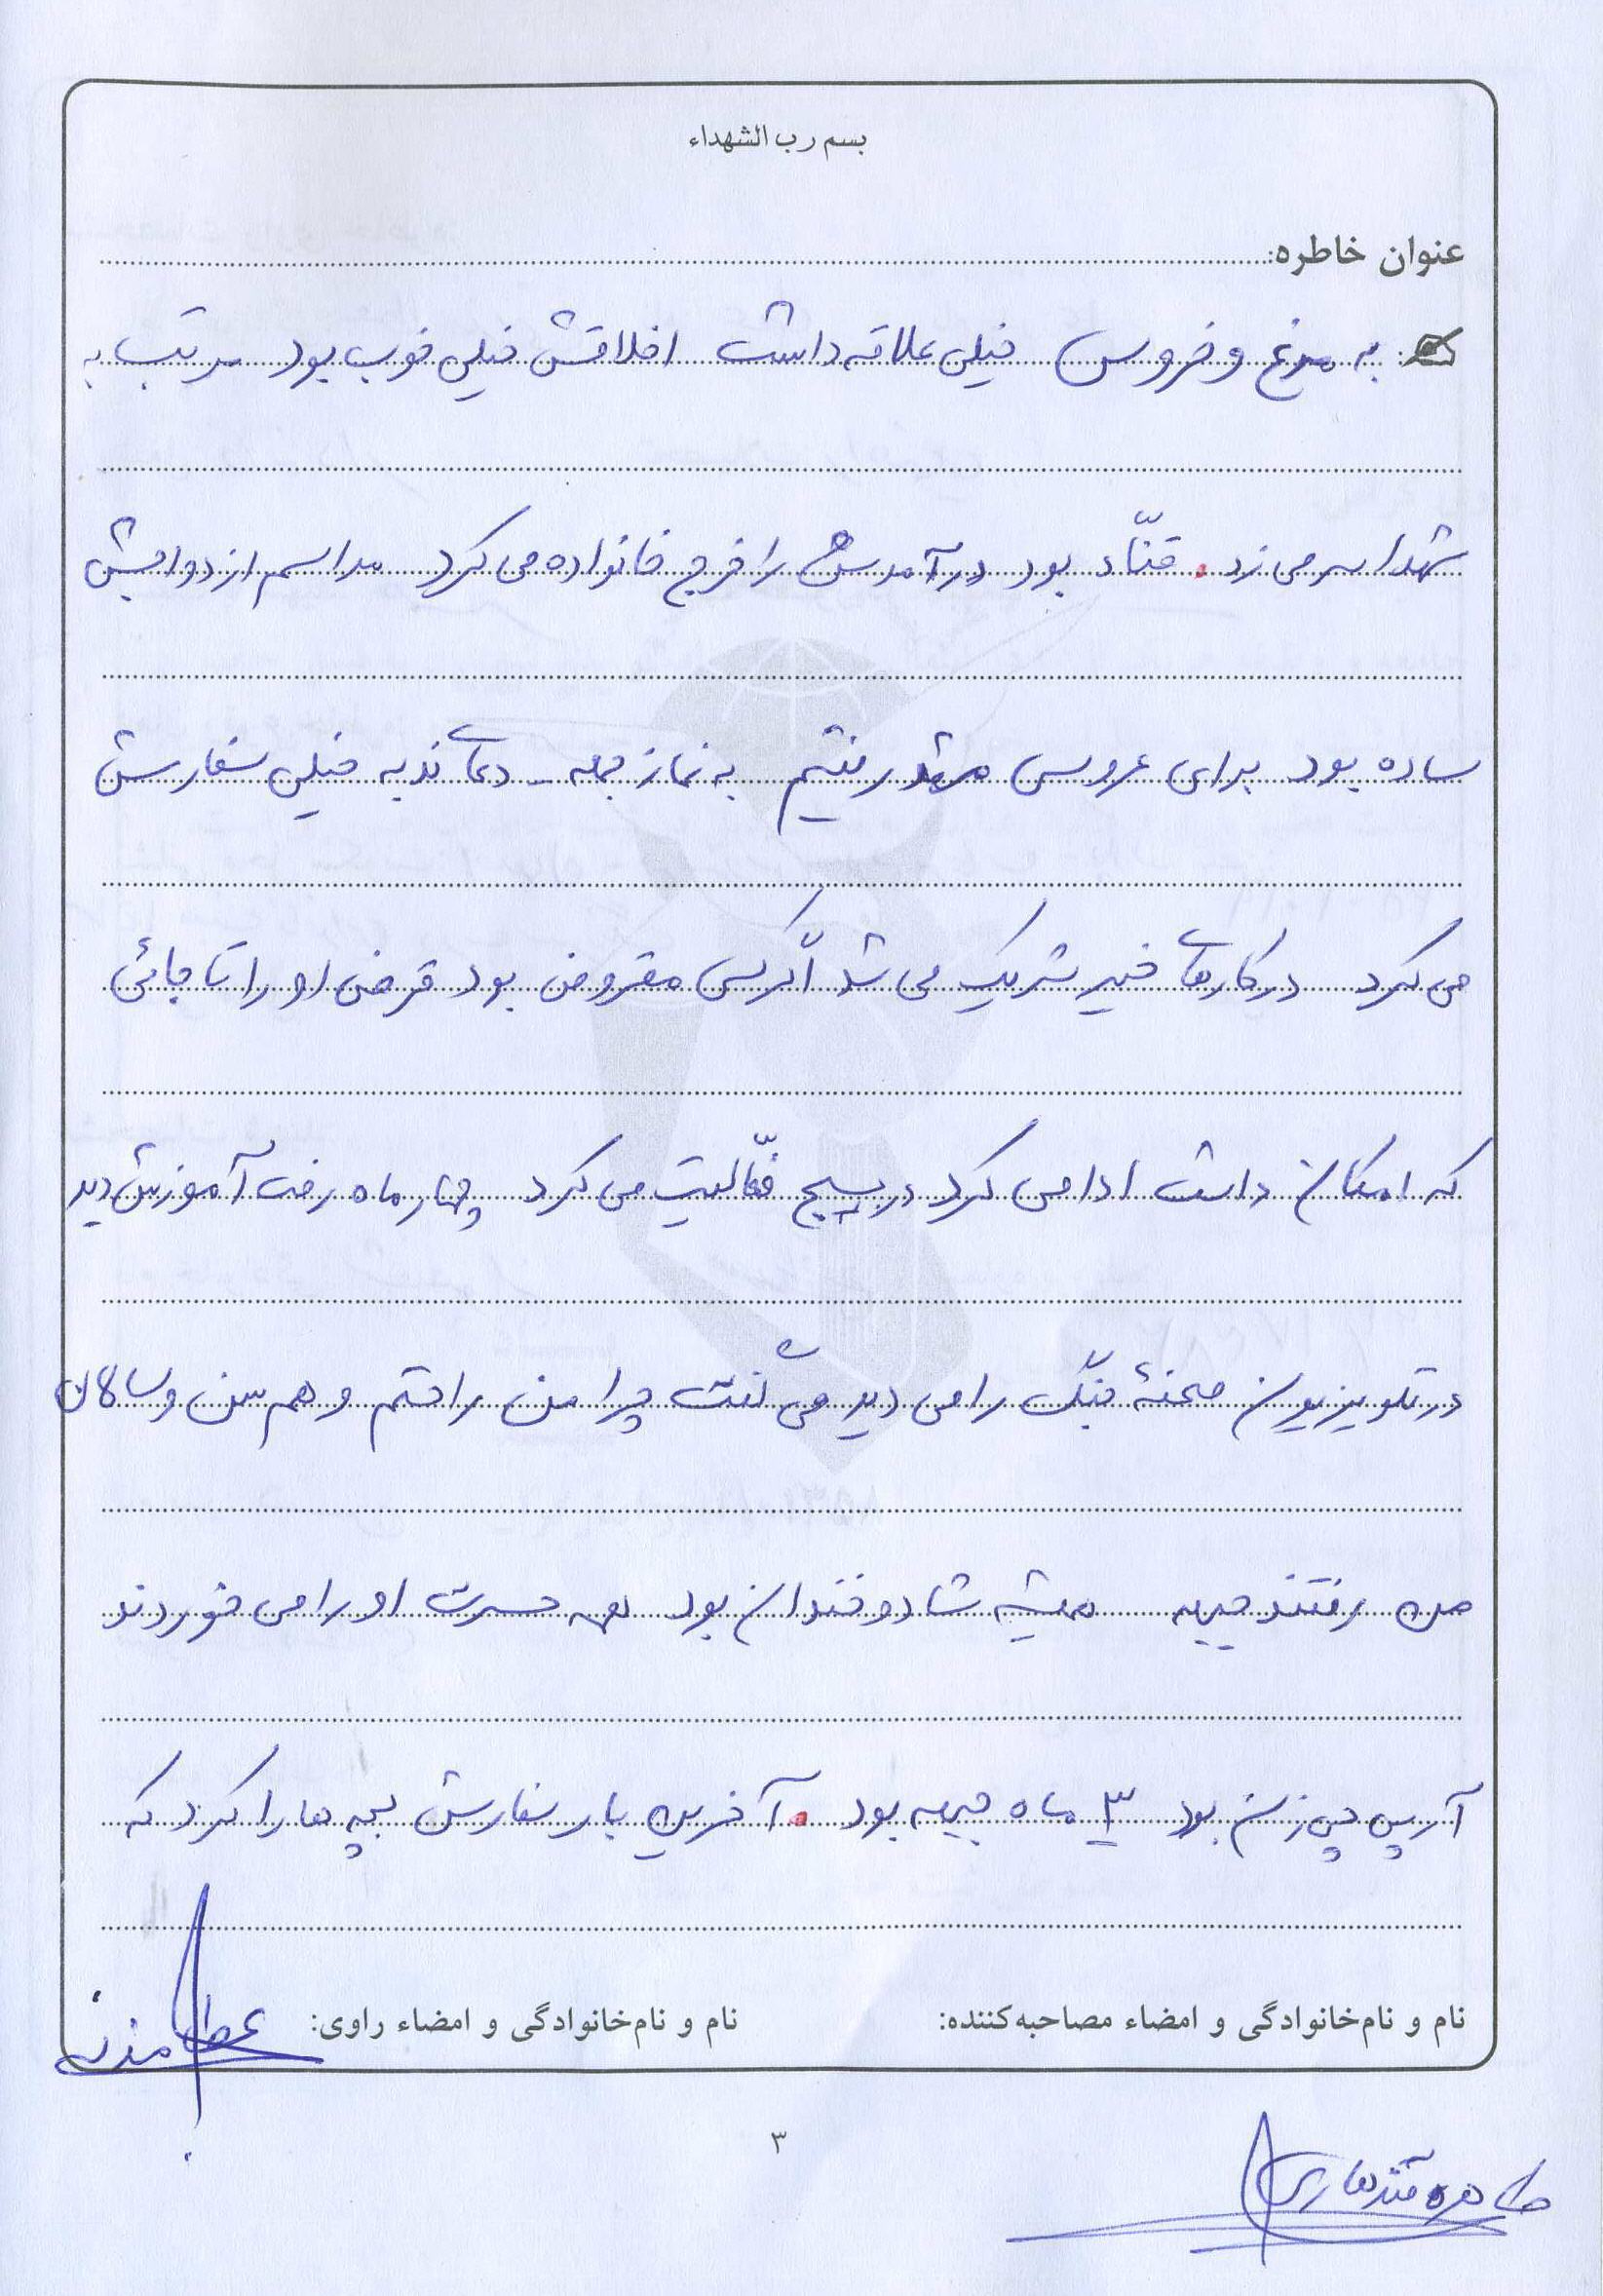 بسم رب الشهداء
عنوان خاطره:
به مرغ و خروس خیلی علاقه داشت اخلاقش خیلی خوب بود مرتب به
شهدا سر می زد. قنّاد بود درآمدش را خرج خانواده می کرد مراسم ازدواجش
ساده بود برای عروسی مشهد رفتیم به نماز جمعه - دعای ندبه خیلی سفارش
می کرد در کارهای خیر شریک می شد اگر کسی مقروض بود قرض او را تا جائی
که امکان داشت ادا می کرد در بسیج فعّالیت می کرد چهار ماه رفت آموزش دید
در تلویزیون صحنهٔ جنگ را می دید می گفت چرا من راحتم و هم سن و سالان
من رفتند جبهه همیشه شاد و خندان بود همه حسرت او را می خوردند
آرپی جی زن بود ۳ ماه جبهه بود. آخرین بار سفارش بچه ها را کرد که
نام و نام‌خانوادگی و امضاء مصاحبه‌کننده: نام و نام‌خانوادگی و امضاء راوی:
۳
طاهره قندهاری